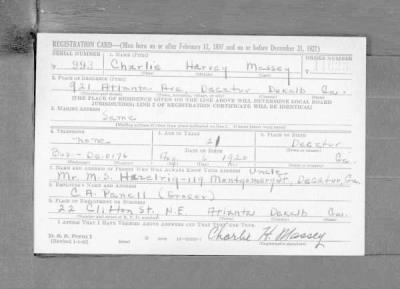 REGISTRATION CARD—(Men born on or after February 17, 1897 and on or before December 31, 1921)
SERIAL NUMBER 1. NAME (Print) ORDER NUMBER
993 Charlie Harvey Massey
(First) (Middle) (Last)
2. PLACE OF RESIDENCE (Print)
921 Atlanta Ave, Decatur Dekalb Ga.
[THE PLACE OF RESIDENCE GIVEN ON THE LINE ABOVE WILL DETERMINE LOCAL BOARD
JURISDICTION; LINE 2 OF REGISTRATION CERTIFICATE WILL BE IDENTICAL]
3. MAILING ADDRESS
Same
4. TELEPHONE 5. AGE IN YEARS 6. PLACE OF BIRTH
none 21 Decatur
DATE OF BIRTH
Bus- De. 0176 1920 Ga.
7. NAME AND ADDRESS OF PERSON WHO WILL ALWAYS KNOW YOUR ADDRESS Uncle
Mr. M.S. 119 Montgomery St, Decatur, Ga.
8. EMPLOYER'S NAME AND ADDRESS
C.A. Panell (Grocer)
9. PLACE OF EMPLOYMENT OR BUSINESS
22 Clifton St. N.E. Atlanta Dekalb Ga.
I AFFIRM THAT I HAVE VERIFIED ABOVE ANSWERS AND THAT THEY ARE TRUE.
D. S. S. Form 1
Charlie H. Massey